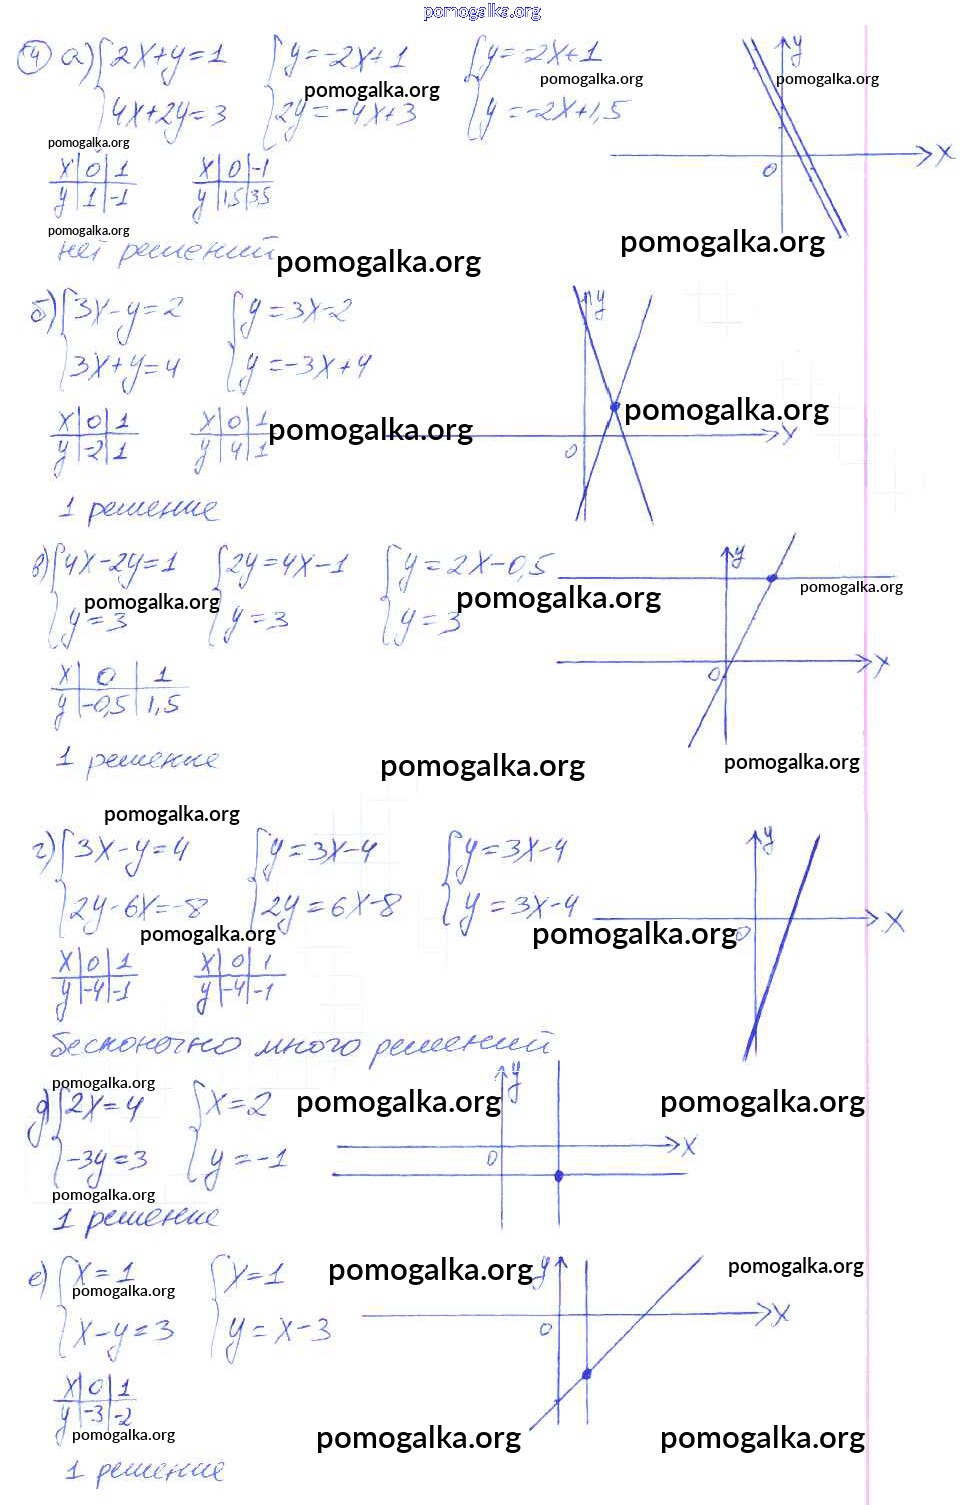 pomogalka.org
4 а) { 2x+y=1 { y=-2x+1 { y=-2x+1 y
pomogalka.org pomogalka.org pomogalka.org
4x+2y=3 2y=-4x+3 y=-2x+1,5
pomogalka.org
x 0 1 x 0 -1 0 x
y 1 -1 y 1,5 3,5
pomogalka.org
нет решений pomogalka.org pomogalka.org
б) { 3x-y=2 { y=3x-2 y
3x+y=4 y=-3x+4
x 0 1 x 0 1 pomogalka.org pomogalka.org
y -2 1 y 4 1 0 x
1 решение
в) { 4x-2y=1 { 2y=4x-1 { y=2x-0,5 y
pomogalka.org pomogalka.org pomogalka.org
y=3 y=3 y=3
x 0 1 0 x
y -0,5 1,5
1 решение pomogalka.org pomogalka.org
pomogalka.org
г) { 3x-y=4 { y=3x-4 { y=3x-4 y
2y-6x=-8 2y=6x-8 y=3x-4 x
pomogalka.org pomogalka.org 0
x 0 1 x 0 1
y -4 -1 y -4 -1
бесконечно много решений
pomogalka.org y
д) { 2x=4 { x=2 pomogalka.org pomogalka.org
-3y=3 y=-1 0 x
pomogalka.org
1 решение
е) { x=1 { x=1 pomogalka.org y pomogalka.org
pomogalka.org
x-y=3 y=x-3 0 x
x 0 1
y -3 -2
pomogalka.org pomogalka.org pomogalka.org
1 решение